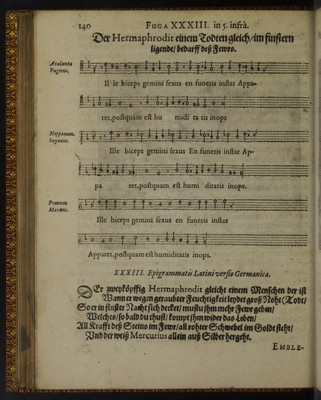 140 FUGA XXXIII. in 5. infrà.
Der Hermaphrodit einem Todten gleich/im finstern
ligende/ bedarff deß Fewrs.
Atalanta
Fugiens.
Il le biceps gemini sexus en funeris instar Appa-
ret, postquam est hu midi ta tis inops
Hippomen.
sequens.
Ille biceps gemini sexus En funeris instar Ap-
pa ret, postquam est humi ditatis inops.
Pomum
Morans.
Ille biceps gemini sexus en funeris instar
Apparet, postquam est humiditatis inops.
XXXIII. Epigrammatis Latini versio Germanica.
DEr zweyköpffig Hermaphrodit gleicht einem Menschen der ist
Wann er wegen geraubter Feuchtigkeit leydet groß Noht (Todt/
So er in finster Nacht sich decket/ mustu ihm mehr Fewr geben/
Welches/ so bald du thust/ kompt ihm wider das Leben/
All Krafft deß Steins im Fewr/ all rohter Schwebel im Goldt steht/
Und der weiß Mercurius allein auß Silber hergeht.
EMBLE-